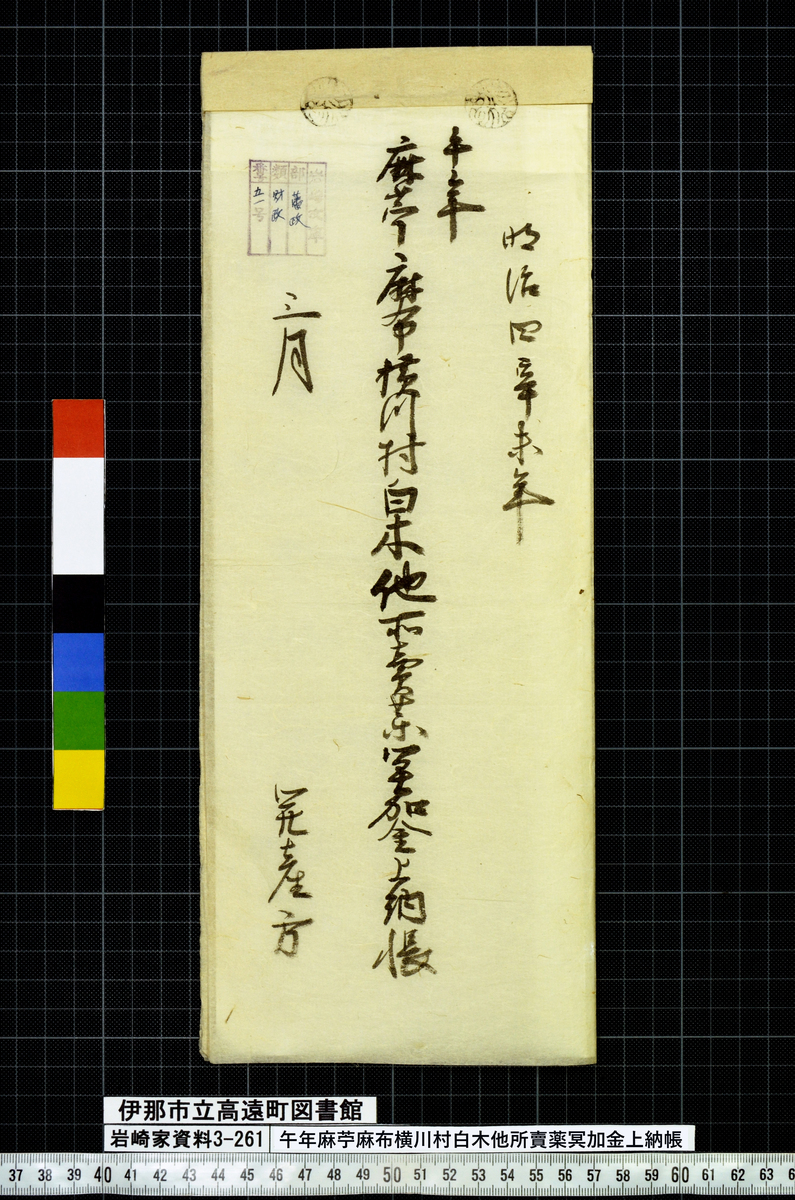 明治四辛未年
午年
麻苧麻布横川村白木他所賣薬冥加金上納帳
三月
産方
岩崎文庫
部 藩政
類 財政
五一号
伊那市立高遠町図書館
岩崎家資料3-261
午年麻苧麻布横川村白木他所賣薬冥加金上納帳
37 38 39 40 41 42 43 44 45 46 47 48 49 50 51 52 53 54 55 56 57 58 59 60 61 62 63